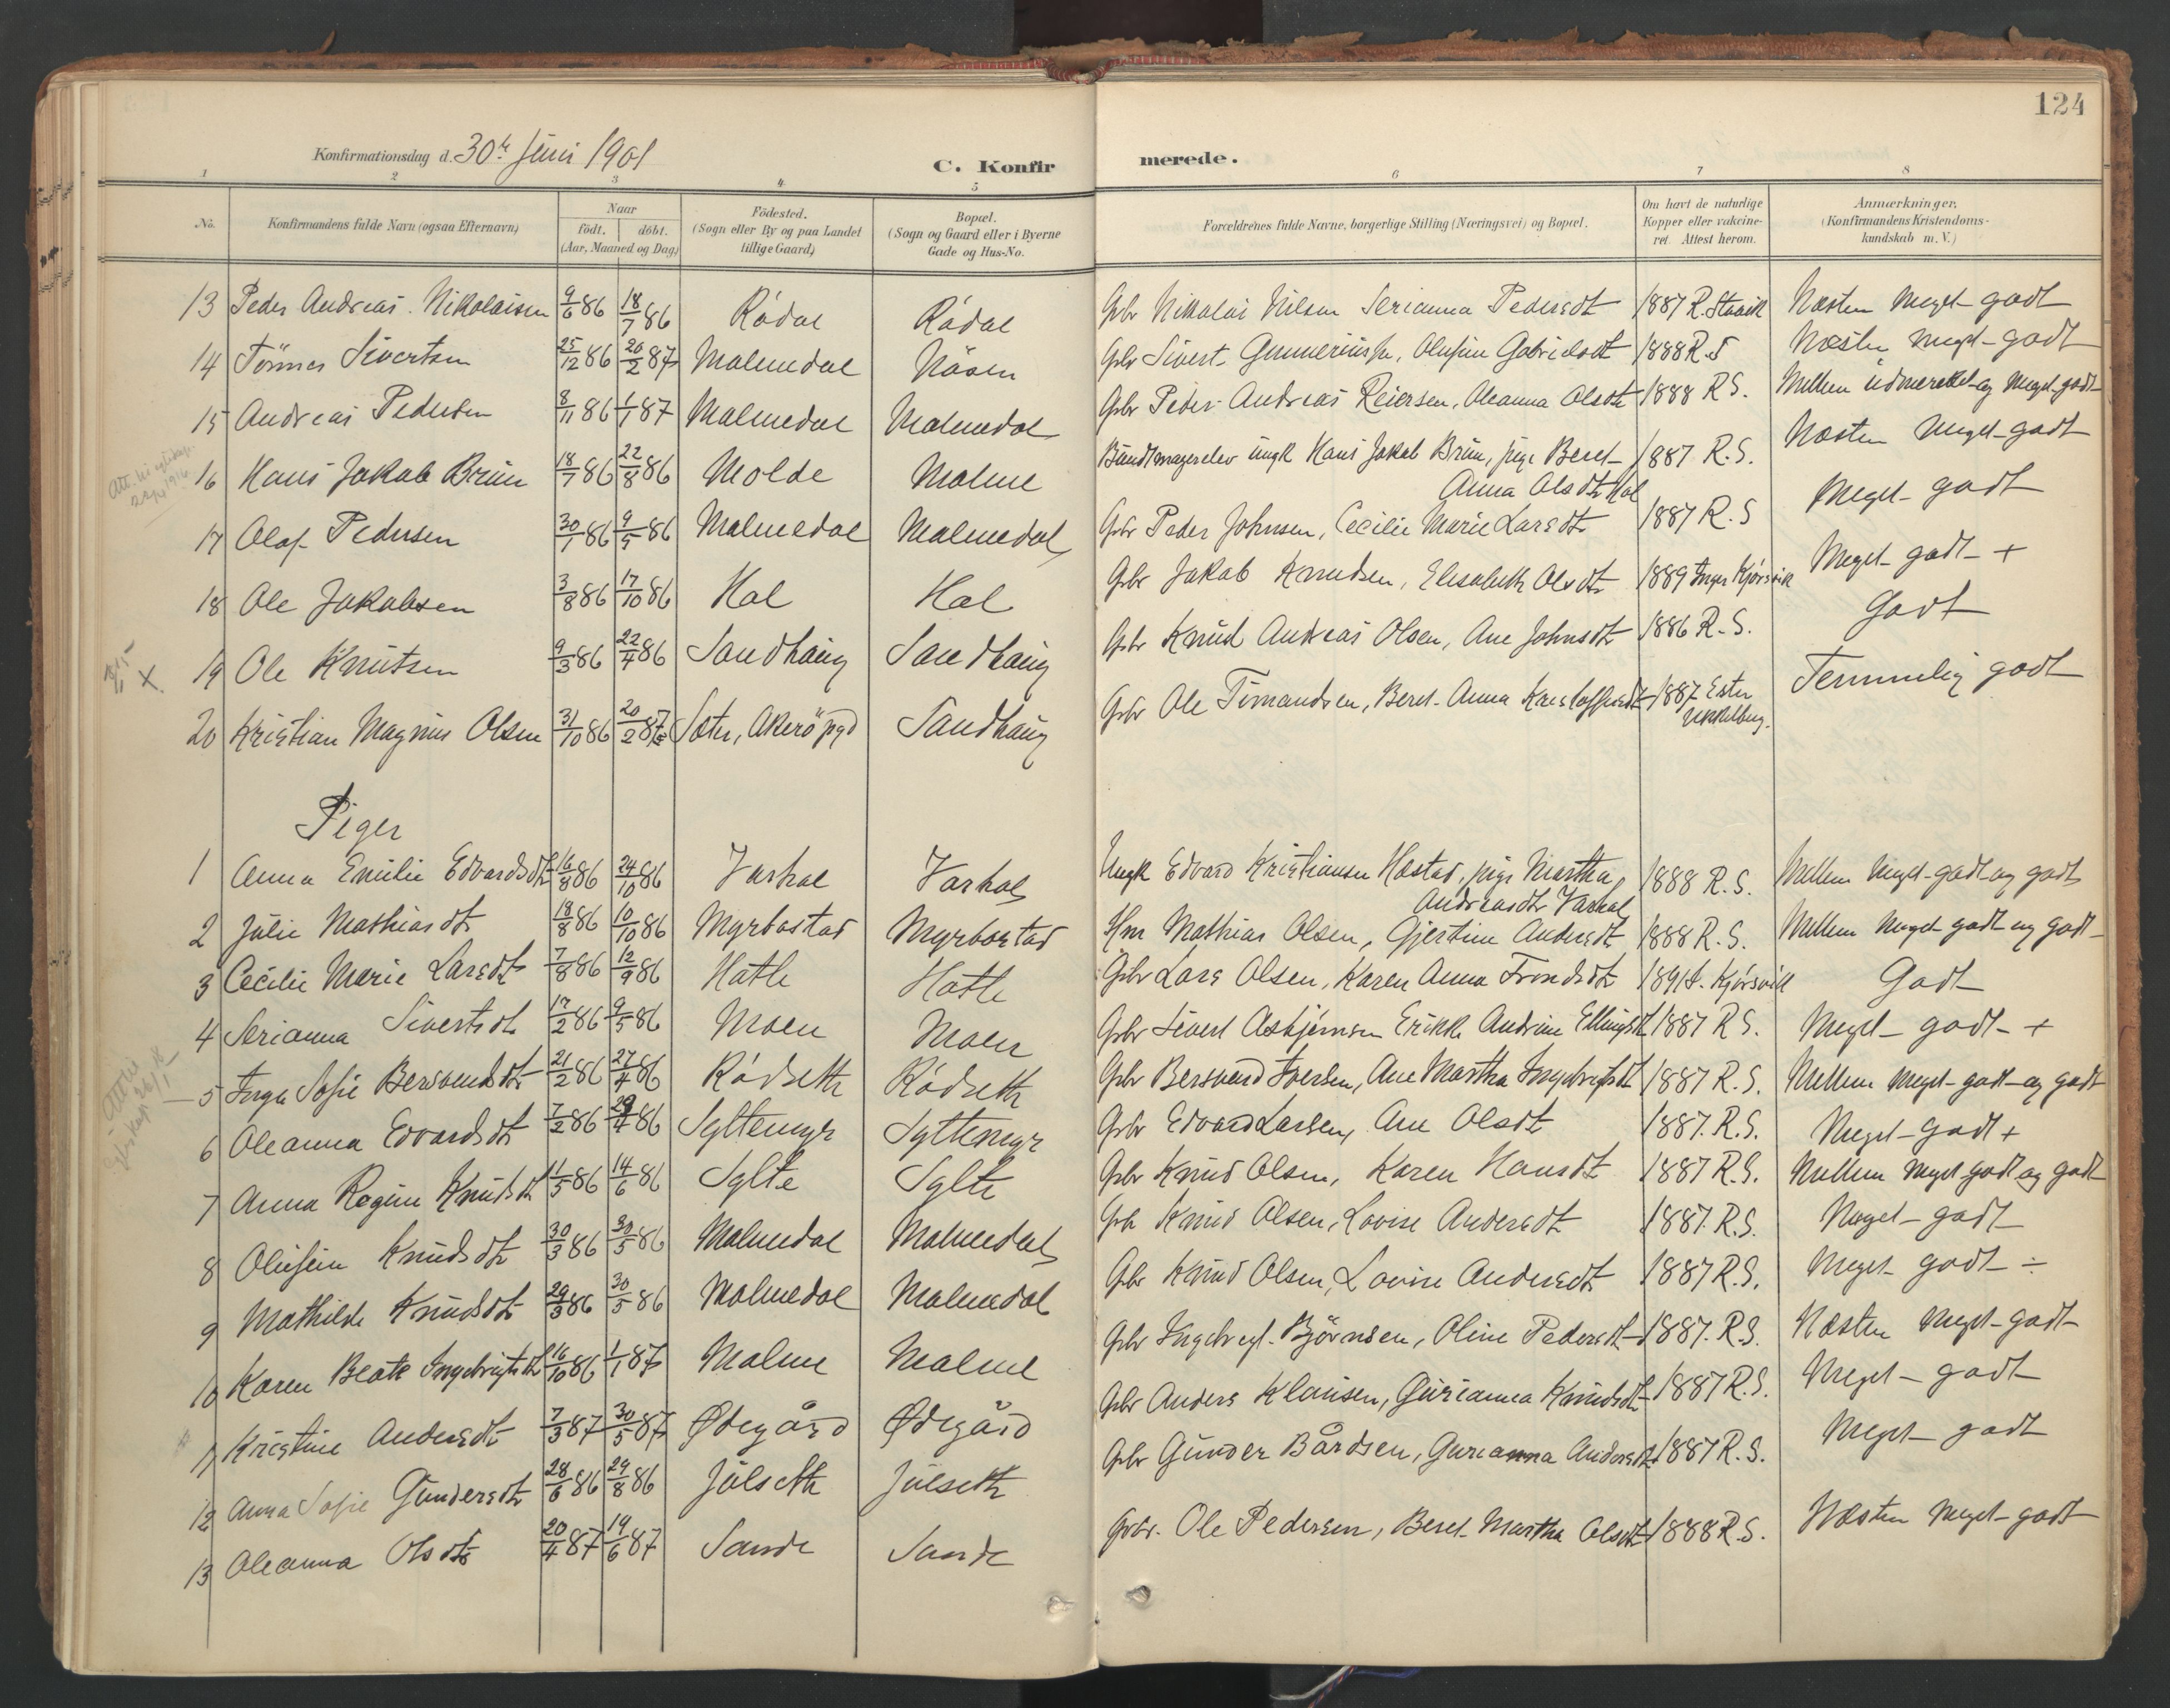 124
Konfirmationsdag d. 30te Juni 1901
C. Konfirmerede.
1 2 3 4 5 6 7 8
No. Konfirmandens fulde Navn (ogsaa Efternavn) Naar födt. döbt. (Aar, Maaned og Dag) Födested. (Sogn eller By og paa Landet tillige Gaard) Bopæl. (Sogn og Gaard eller i Byerne Gade og Hus-No. Forældrenes fulde Navne, borgerlige Stilling (Næringsvei) og Bopæl. Om havt de naturlige Kopper eller vakcineret Attest herom. Anmærkninger. (Konfirmandens Kristendomskundskab m.V.)
13 Peder Andreas Nikolaisen 9/6 86 18/7 86 Rödal Rödal Gbr Nikolai Nilsen Serianna Pedersdt 1887 R. Staavik Næsten meget godt
14 Tönnes Sivertsen 25/12 86 20/2 87 Malmedal Nåsen Gbr Sivert Gunneriussen, Olufine Gabrielsdt 1888 R.S Næsten meget godt
15 Andreas Pedersen 8/11 86 1/1 87 Malmedal Malmedal Gbr Peder Andreas Reiersen, Oleanna Olsdt 1888 R S. Mellem udmærket og meget godt
16 Hans Jakob Brun 18/7 86 22/8 86 Molde Malme Bundtmagerelev ungk Hans Jakob Brun, pige Beret Anna Olsdtr Hol 1887 R.S. Næsten meget godt
17 Olaf Pedersen 30/1 86 9/5 86 Malmedal Malmedal Gbr Peder Johnsen, Cecilie Marie Larsdtr 1887 R.S Meget godt
18 Ole Jakobsen 3/8 86 17/10 86 Hol Hol Gbr Jakob Knudsen, Elisabeth Olsdtr 1889 Inger Kjörsvik Meget godt +
19 Ole Knutsen 9/3 86 22/4 86 Sandhaug Sandhaug Gbr Knud Andreas Olsen, Ane Johnsdtr 1886 R.S. Godt
20 Kristian Magnus Olsen 31/10 86 20/2 87 Sæter, Akerö pgd Sandhaug Gbr Ole Timandsen, Beret Anna Kristoffersdt 1887 Ester Temmelig godt
Piger
1 Anna Emilie Edvardsdtr 16/8 86 24/10 86 Varhol Varhol Ungk Edvard Kristiansen Hostad, pige Martha Andreasdtr Varhol 1888 R.S. Mellem meget godt og godt
2 Julie Mathiasdtr 18/8 86 10/10 86 Myrbostad Myrbostad Hm Mathias Olsen, Gjertine Andersdt 1888 R.S. Mellem meget godt og godt
3 Cecilie Marie Larsdtr 7/8 86 12/9 86 Hatle Hatle Gbr Lars Olsen, Karen Anna Trondsdtr 1891 I. Kjörsvik Godt
4 Serianna Sivertsdt 17/2 86 9/5 86 Moen Moen Gbr Sivert Asbjörnsen Erikke Andrine Ellingsdt 1887 R S. Meget godt +
5 Inga Sofie Bersvendsdtr 21/2 86 27/4 86 Rödseth Rödseth Gbr Bersvend Iversen, Ane Martha Ingebrigtsdt 1887 R.S. Mellem meget godt og godt
6 Oleanna Edvardsdt 7/2 86 29/4 86 Syltemyr Syltemyr Gbr Edvard Larsen, Ane Olsdt 1887. R.S. Meget godt +
7 Anna Regine Knudsdt 11/5 86 14/6 86 Sylte Sylte Gbr Knud Olsen, Karen Hansdt 1887 R.S. Mellem meget godt og godt
8 Olufine Knudsdt 30/3 86 30/5 86 Malmedal Malmedal Gbr Knud Olsen, Lovise Andersdt 1887. R.S. Meget godt
9 Mathilde Knudsdt 29/3 86 30/5 86 Malmedal Malmedal Gbr Knud Olsen, Lovise Andersdt 1887 R.S. Meget godt ÷
10 Karen Beate Ingebrigtsdt 16/10 86 1/1 87 Malme Malme Gbr Ingebrigt Björnsen, Oline Pedersdt 1887. R.S. Næsten meget godt
11 Kristine Andersdt 7/3 87 30/5 87 Ødegård Ødegård Gbr Anders Klausen, Gurianna Knudsdt 1887 R.S. Meget godt
12 Anna Sofie Gundersdt 28/6 86 29/8 86 Julseth Julseth Gbr Gunder Bårdsen, Gurianna Andersdt 1887 R.S. Meget godt
13 Oleanna Olsdtr 20/4 87 19/6 87 Sande Sande Gbr. Ole Pedersen, Beret Martha Olsdt 1888 R.S. Næsten meget godt